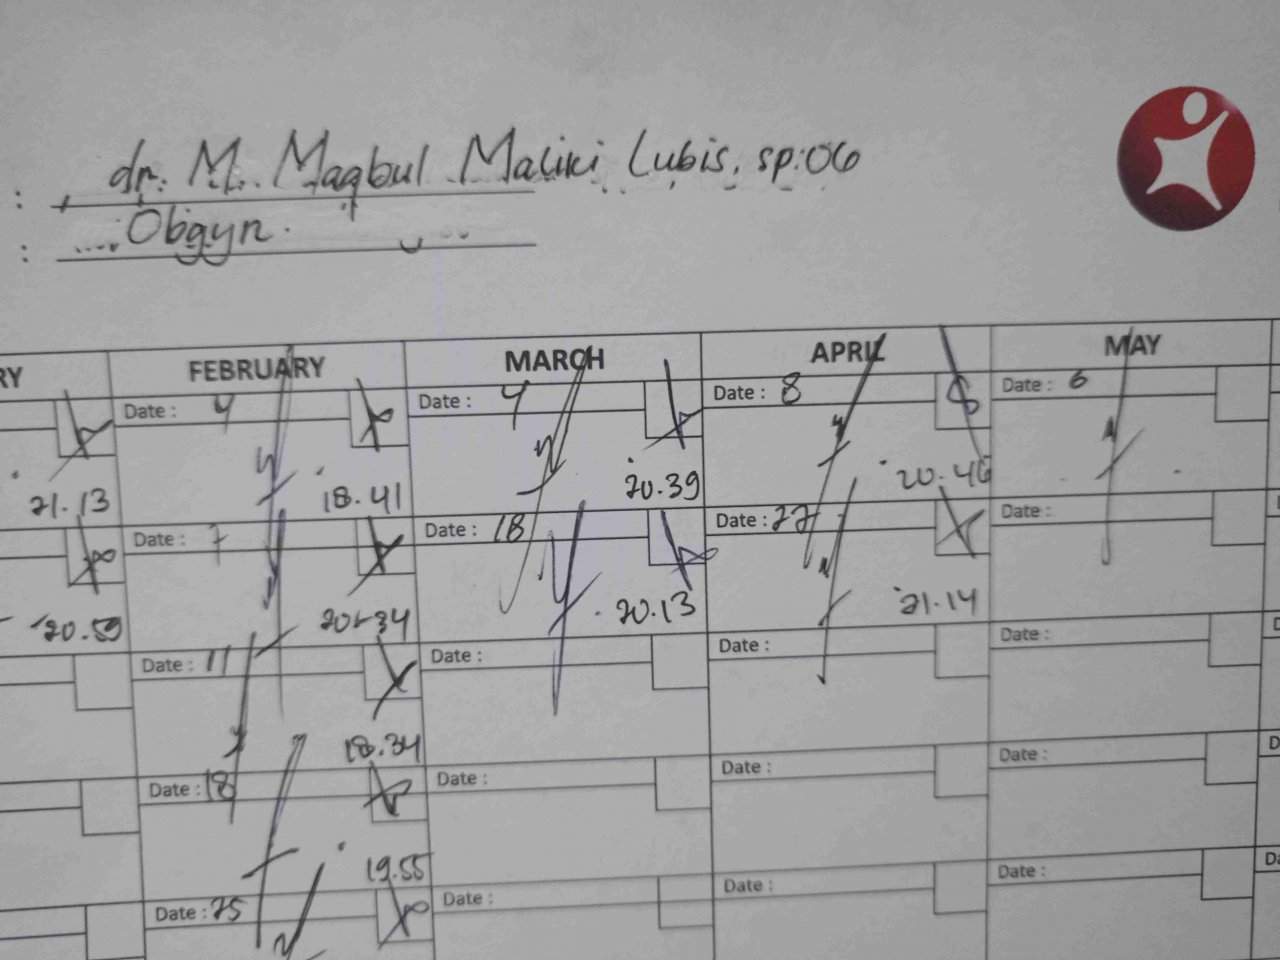 : dr. M. Maqbul Maliki Lubis, sp.OG
: Obgyn.
RY FEBRUARY MARCH APRIL MAY
Date : 4 Date : 4 Date : 8 Date : 6
21.13 18.41 20.39 20.46
Date : 7 Date : 18 Date : 22 Date :
20.59 20.34 20.13 21.14
Date : 11 Date : Date : Date :
18.34
Date : 18 Date : Date : Date :
19.55
Date : 25 Date : Date : Date :